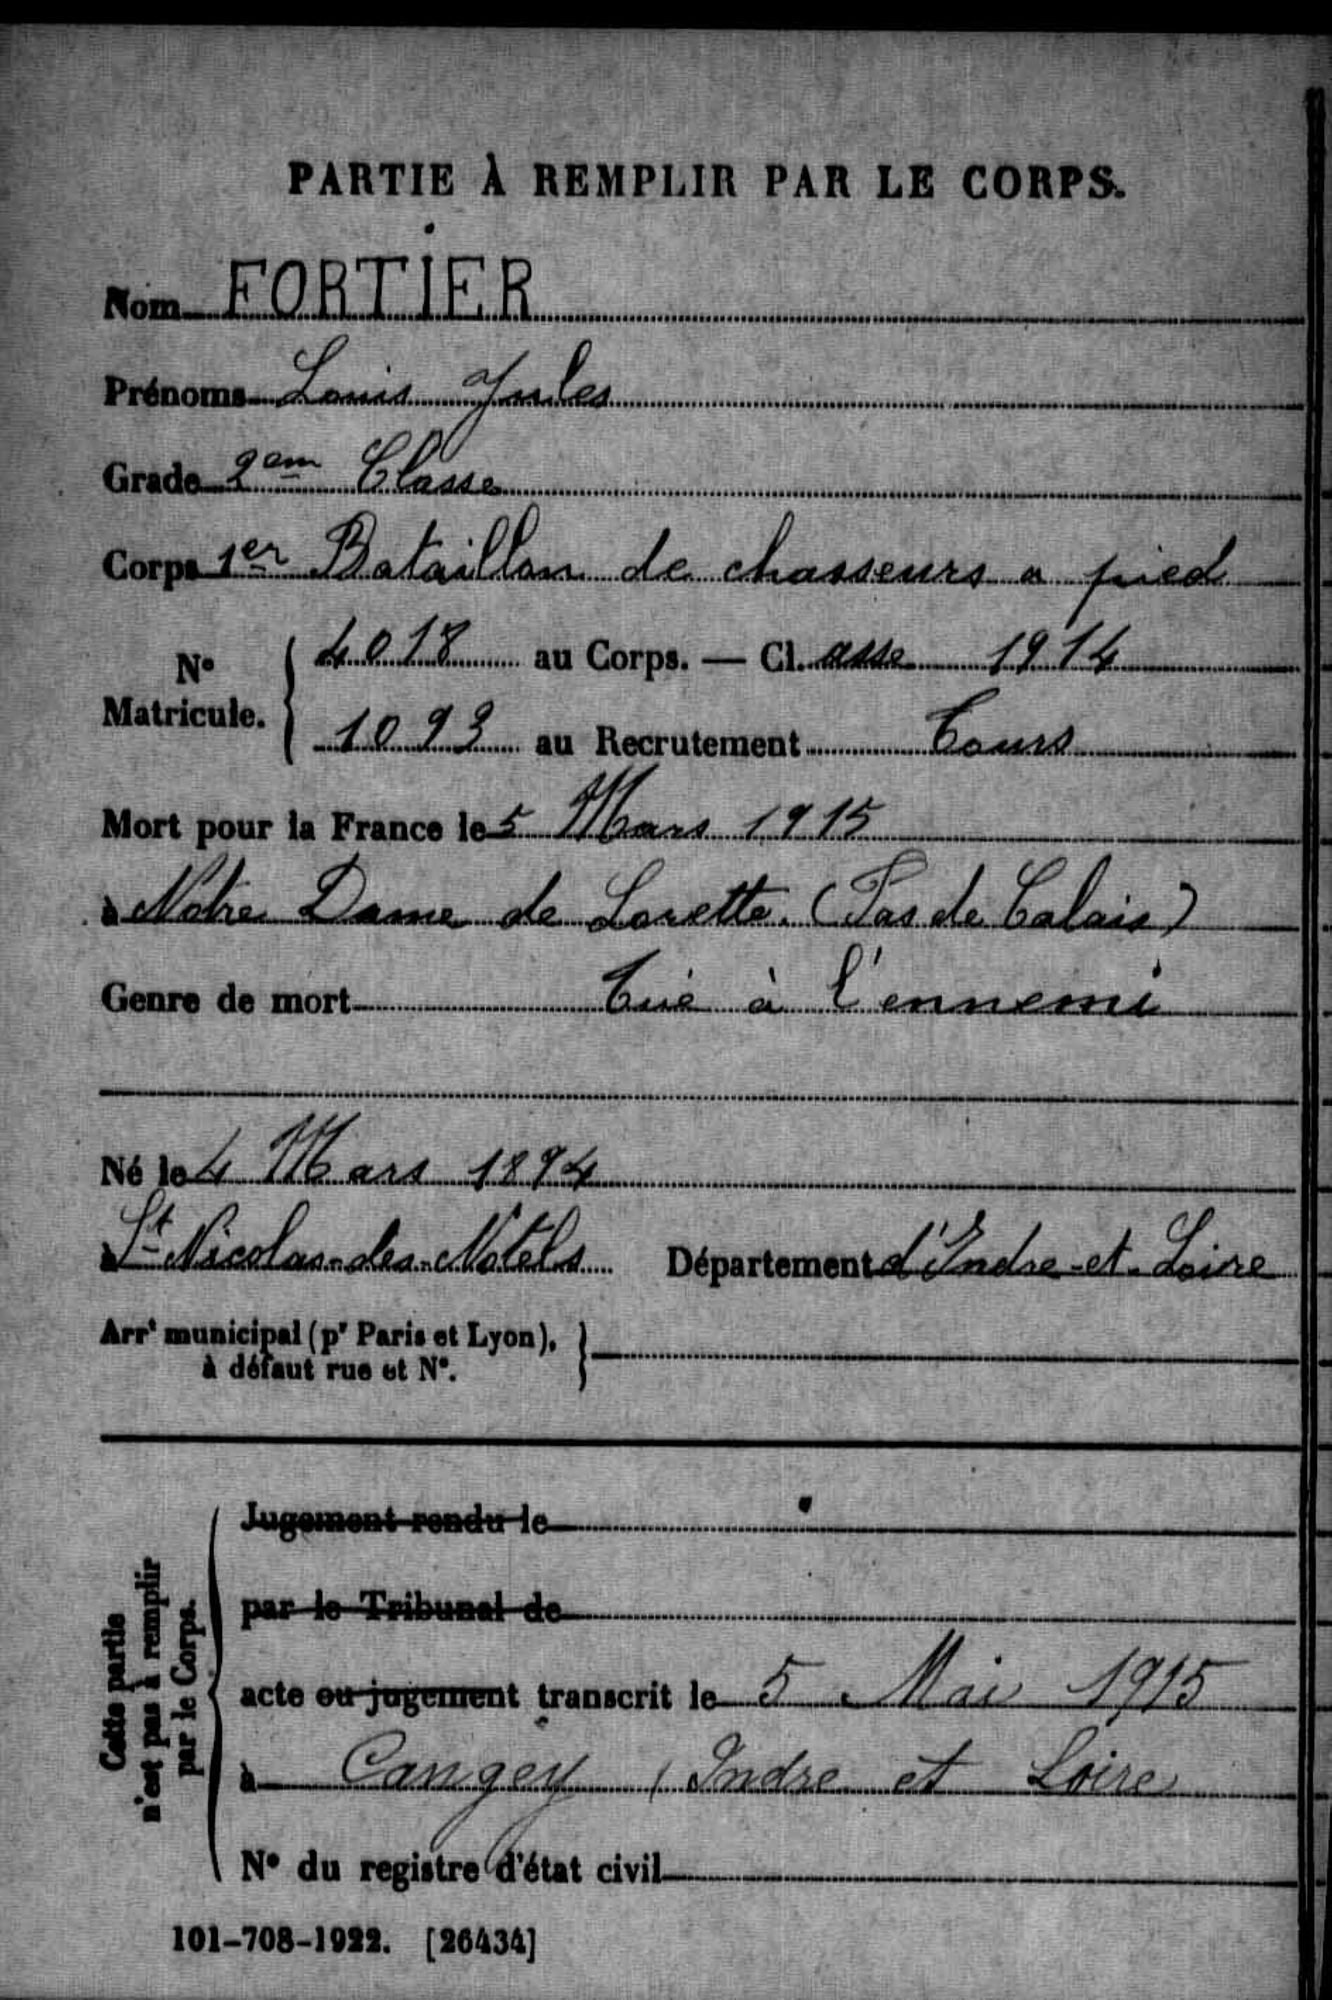 PARTIE À REMPLIR PAR LE CORPS.
Nom FORTIER
Prénoms Louis Jules
Grade 2em Classe
Corps 1er Bataillon de chasseurs a pied
N° Matricule. { 4018 au Corps. — Cl. asse 1914
1093 au Recrutement Tours
Mort pour la France le 5 Mars 1915
à Notre Dame de Lorette. (Pas de Calais)
Genre de mort Tué à l'ennemi
Né le 4 Mars 1894
à St Nicolas-des-Motels Département d'Indre-et-Loire
Arrt municipal (pr Paris et Lyon), à défaut rue et N°. }
Cette partie n'est pas à remplir par le Corps.
Jugement rendu le
par le Tribunal de
acte ou jugement transcrit le 5 Mai 1915
à Cangey, Indre et Loire
N° du registre d'état civil
101-708-1922. [26434]